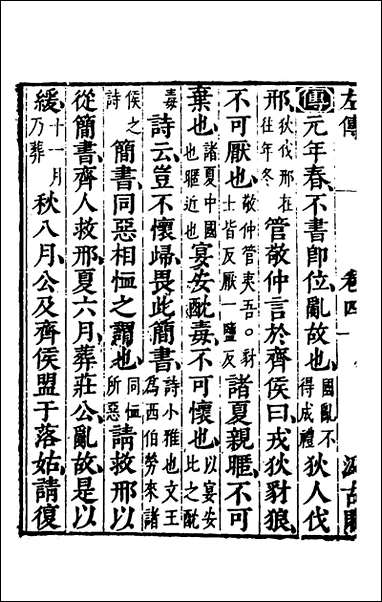 左傳 卷四 一 汲古閣
傳元年春不書即位亂故也國亂不得成禮狄人伐
邢狄伐邢在往年冬管敬仲言於齊侯曰戎狄豺狼
不可厭也敬仲管夷吾○豺士皆反厭一鹽反諸夏親暱不可
棄也諸夏中國也暱近也宴安酖毒不可懷也以宴安比之酖
毒詩云豈不懷歸畏此簡書詩小雅也文王為西伯勞來諸
侯之詩簡書同惡相恤之謂也同恤所惡請救邢以
從簡書齊人救邢夏六月葬莊公亂故是以
緩十一月乃葬秋八月公及齊侯盟于落姑請復